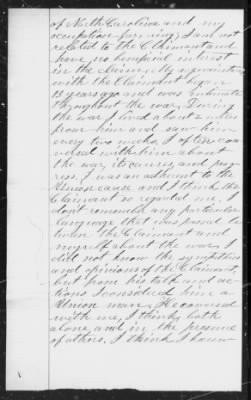 of North Carolina and my
occupation farming; I am not
related to the Claimant and
have no beneficial interest
in the claim. My acquaintance
with the Claimant began
13 years ago and was intimate
throughout the war. During
the war I lived about 2 miles
from him and saw him
every two weeks. I often con
versed with him about
the war, its causes, and prog
ress. I was an adherent to the
Union cause and I think the
Claimant so regarded me. I
dont remember any particular
language that was passed be
tween the Claimant and
myself about the war. I
did not know the sympathies
and opinions of the Claimant,
but from his talk and ac
tions I considered him a
Union man. He conversed
with me, I think, both
alone and in the presence
of others. I think I knew